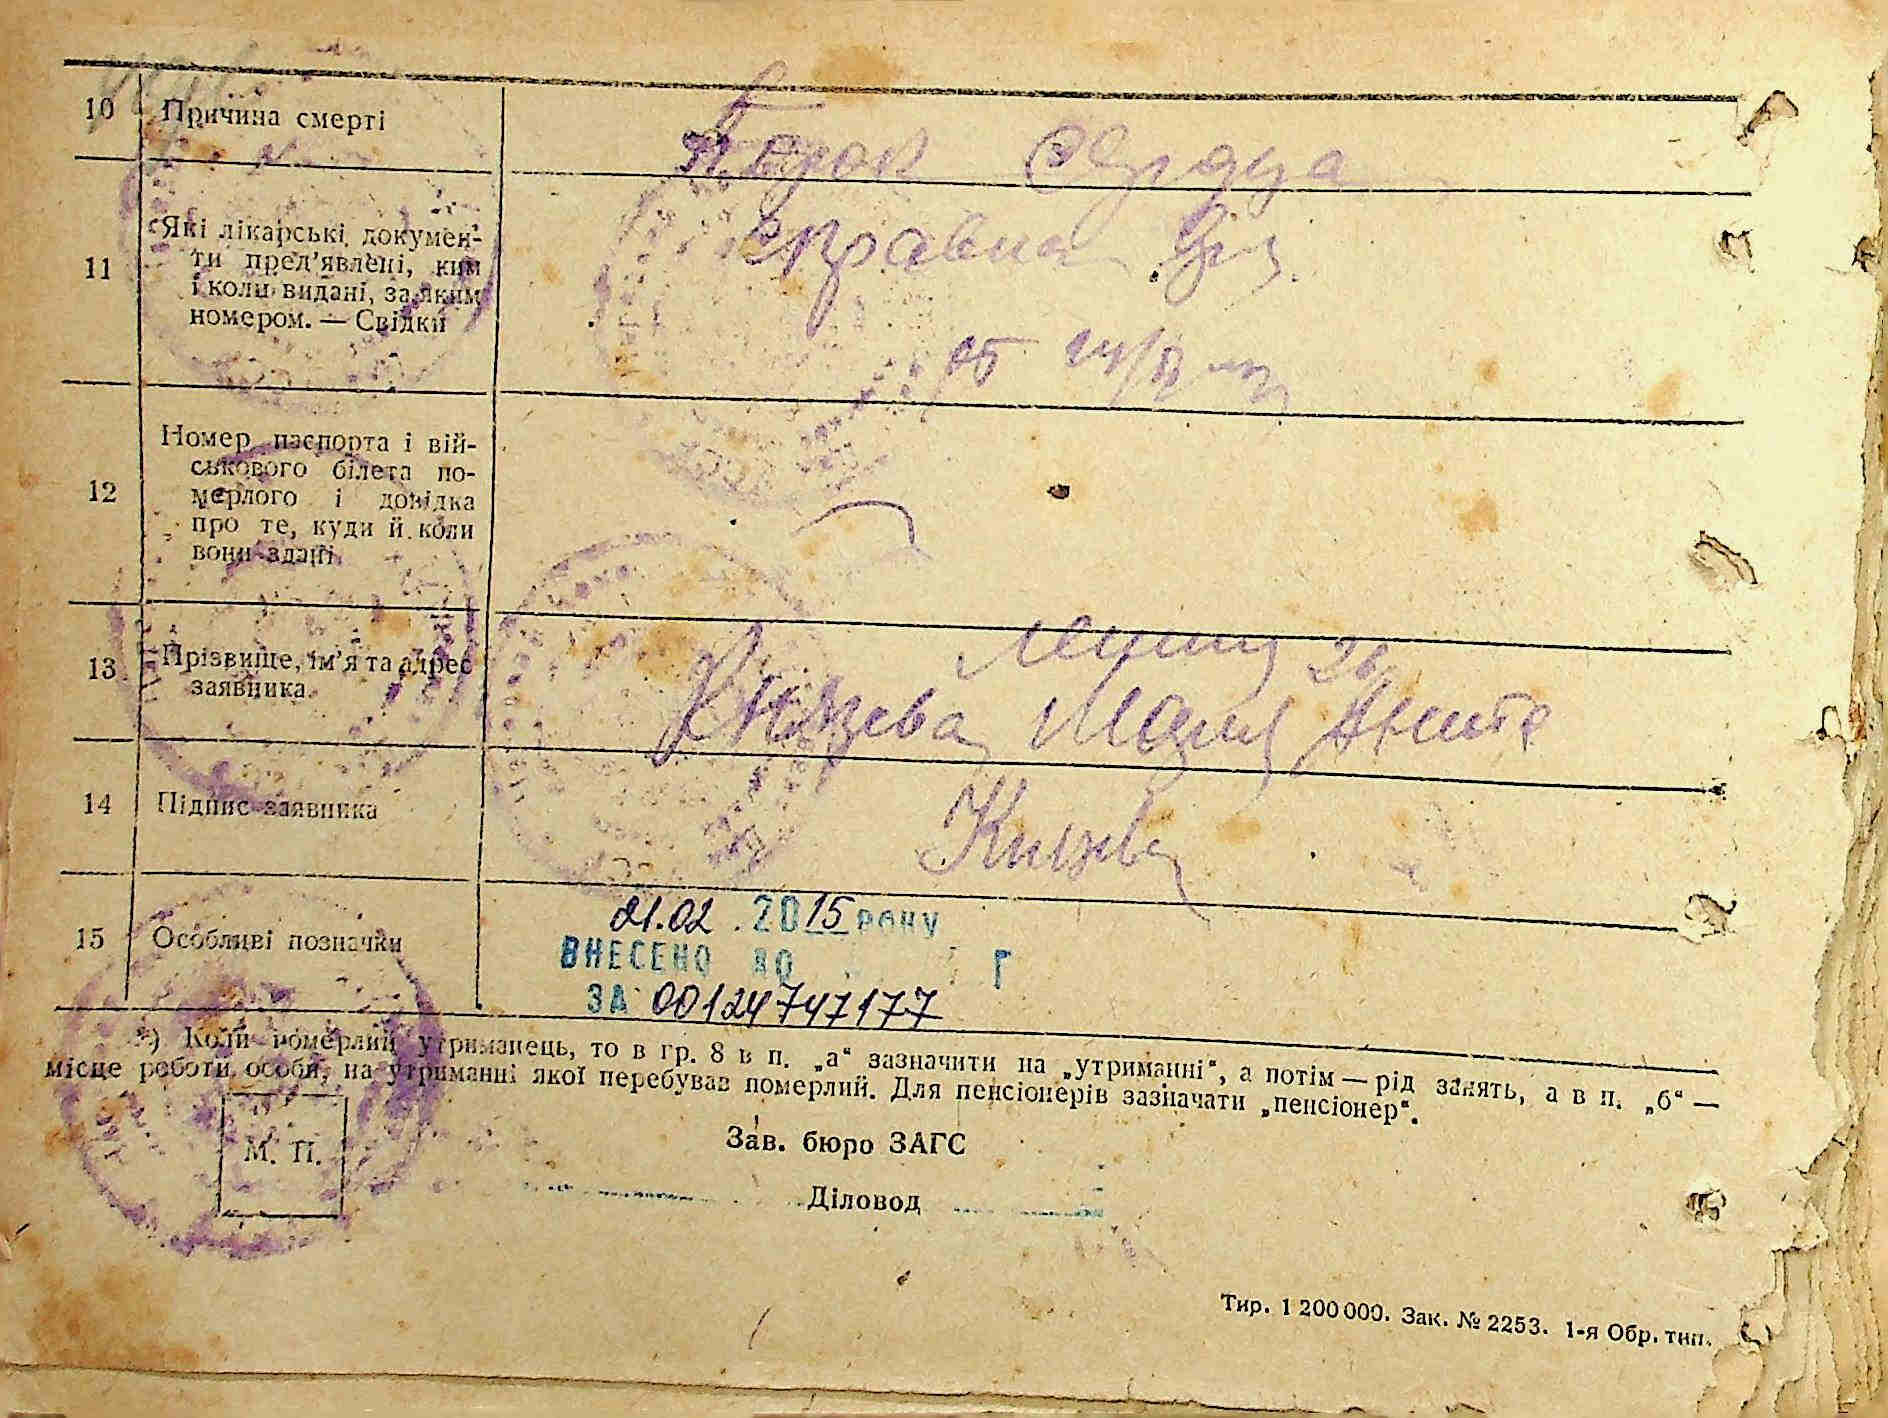 10 Причина смерті
Порок сердца
11 Які лікарські докумен-
ти пред'явлені, ким
і коли видані, за яким
номером. — Свідки
справка
от
12 Номер паспорта і вій-
ськового білета по-
мерлого і довідка
про те, куди й коли
вони здані
13 Прізвище, ім'я та адрес
заявника
Ленина 26
Князева Мария
14 Підпис заявника
Князева
15 Особливі позначки
21.02.2015 року
ВНЕСЕНО ДО Г
ЗА 00124747177
*) Коли померлий утриманець, то в гр. 8 в п. „а“ зазначити на „утриманні“, а потім — рід занять, а в п. „б“ —
місце роботи особи, на утриманні якої перебував померлий. Для пенсіонерів зазначати „пенсіонер“.
М. П.
Зав. бюро ЗАГС
Діловод
Тир. 1 200 000. Зак. № 2253. 1-я Обр. тип.